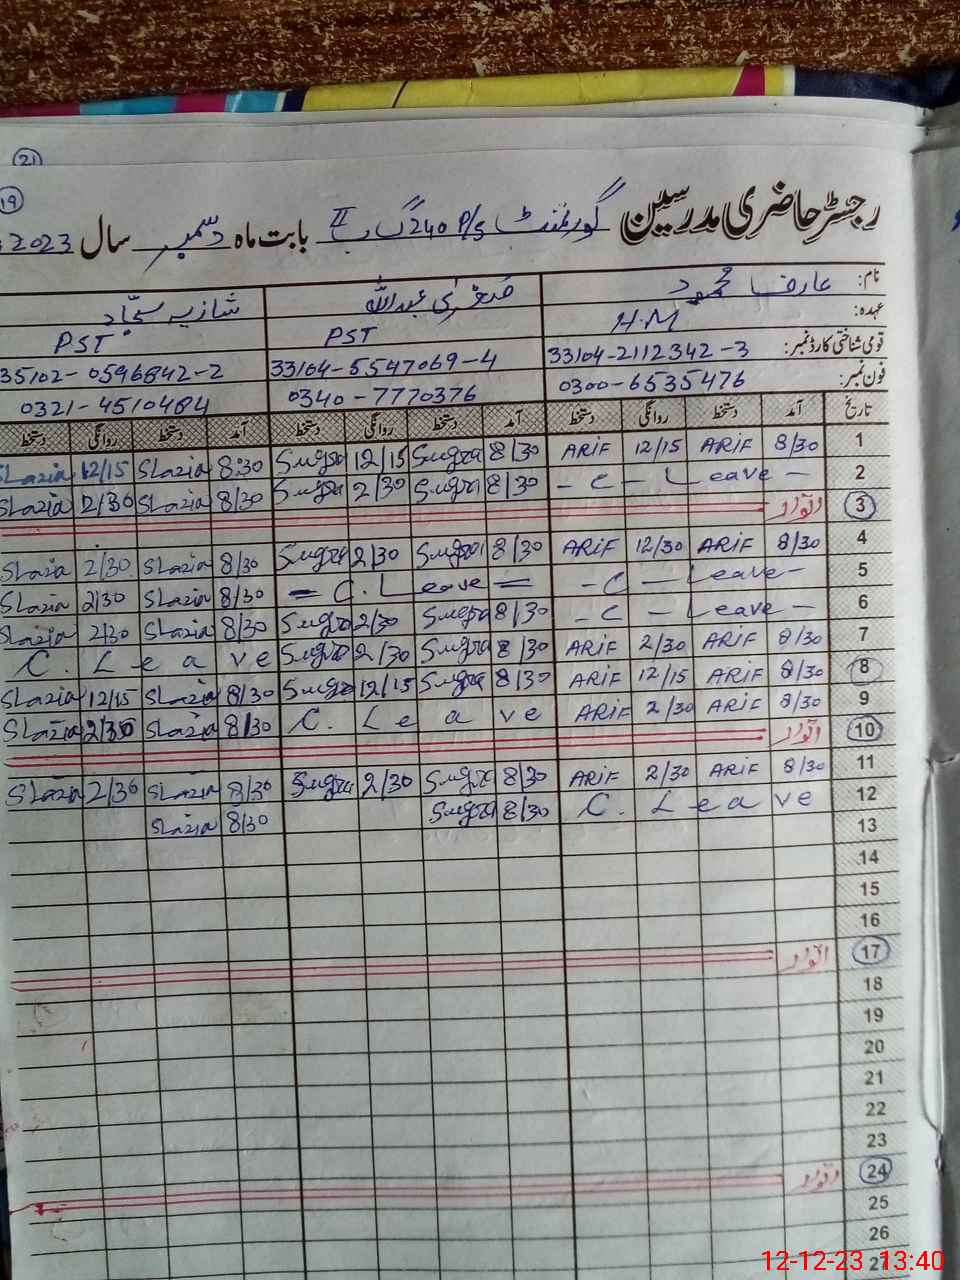 21
19
رجسٹر حاضری مدرسین گورنمنٹ P/S 240 گ ب II بابت ماہ دسمبر سال 2023
نام: عارف محمود صغریٰ عبداللہ شازیہ سجاد
عہدہ: H.M PST PST
قومی شناختی کارڈ نمبر: 33104-2112342-3 33104-5547069-4 35102-0596842-2
فون نمبر: 0300-6535476 0340-7770376 0321-4510484
تاریخ آمد دستخط روانگی دستخط آمد دستخط روانگی دستخط آمد دستخط روانگی دستخط
1 8/30 ARiF 12/15 ARiF 8/30 Sugra 12/15 Sugra 8:30 SLazia 12/15 SLazia
2 - C - Leave - 8/30 Sugra 2/30 Sugra 8/30 SLazia 2/30 SLazia
3 اتوار
4 8/30 ARiF 12/30 ARiF 8/30 Sugra 2/30 Sugra 8/30 SLazia 2/30 SLazia
5 - C - Leave - = C. Leave = 8/30 SLazia 2/30 SLazia
6 - C - Leave - 8/30 Sugra 2/30 Sugra 8/30 SLazia 2/30 SLazia
7 8/30 ARiF 2/30 ARiF 8/30 Sugra 2/30 Sugra C. Leave
8 8/30 ARiF 12/15 ARiF 8/30 Sugra 12/15 Sugra 8/30 SLazia 12/15 SLazia
9 8/30 ARiF 2/30 ARiF C. Leave 8/30 SLazia 2/30 SLazia
10 اتوار
11 8/30 ARiF 2/30 ARiF 8/30 Sugra 2/30 Sugra 8/30 SLazia 2/30 SLazia
12 C. Leave 8/30 Sugra 8/30 SLazia
13
14
15
16
17 اتوار
18
19
20
21
22
23
24 اتوار
25
26
27
12-12-23 13:40